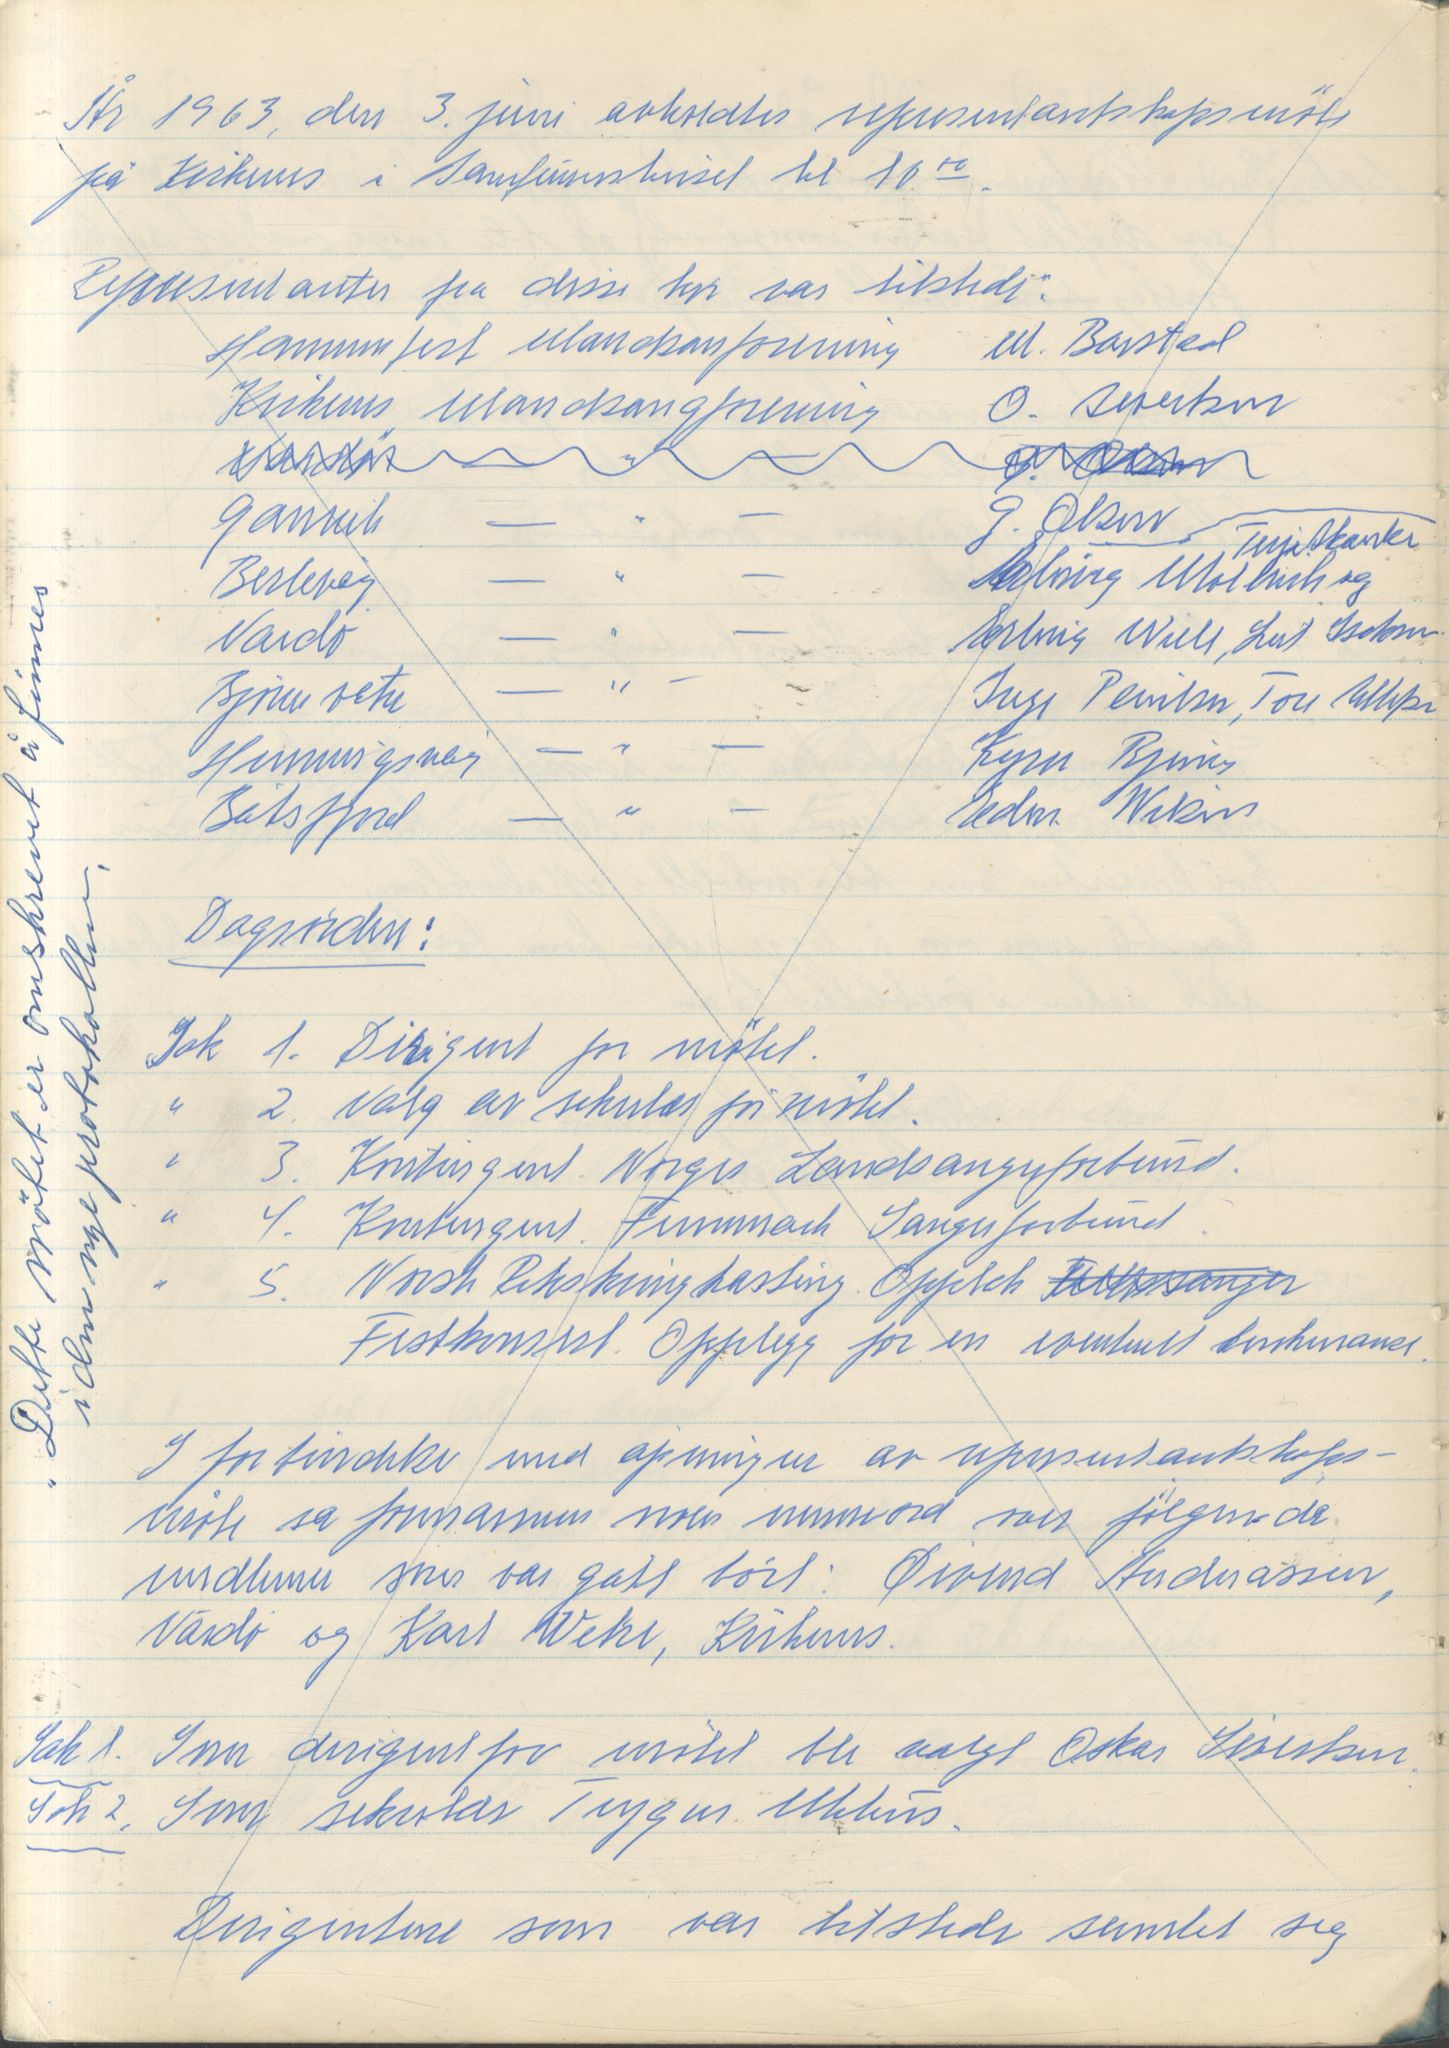 År 1963, den 3. juni avholdtes representantskapsmöte
på Kirkenes i Samfunnshuset kl 10.00.
Representanter fra disse kor var tilstede:
Hammerfest Mandsangforening M. Barstad
Kirkenes Mandsangforening O. Siversen
Vardö — " — O. Olsen
Gamvik — " — G. Olsen
Terje Skanke
Berlevåg — " — og
Vardö — " — Erling
Björnevatn — " — Inge Tore
Honningsvåg — " —
Båtsfjord — " —
Dagsorden:
Sak 1. Dirigent for mötet.
" 2. Valg av sekretær for mötet.
" 3. Kontingent Norges Landsangerforbund.
" 4. Kontingent. Finnmark Sangerforbund.
" 5. Norsk Rikskringkasting. Opptak
Festkonsert. Opplegg for en eventuell konkurranse.
I forbindelse med åpningen av representantskaps-
möte sa formannen noen minneord over fölgende
medlemmer som var gått bort: Øivind Andreassen,
Vardö og Karl Kirkenes.
Sak 1. Som dirigent for mötet ble valgt Oskar Siversen.
Sak 2. Som sekretær Trygve
Dirigentene som var tilstede samlet seg
"Dette mötet er omskrevet å finnes
i den nye protokollen.